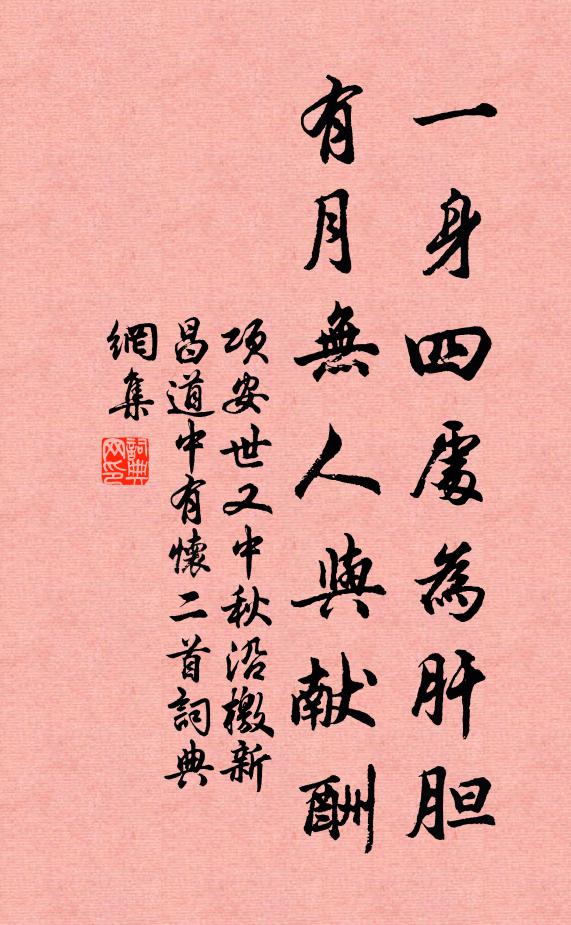 一身四處為肝胆
有月無人與献酬
項安世又中秋沿檄新
昌道中有懷二首詞典
網集
詞典網印